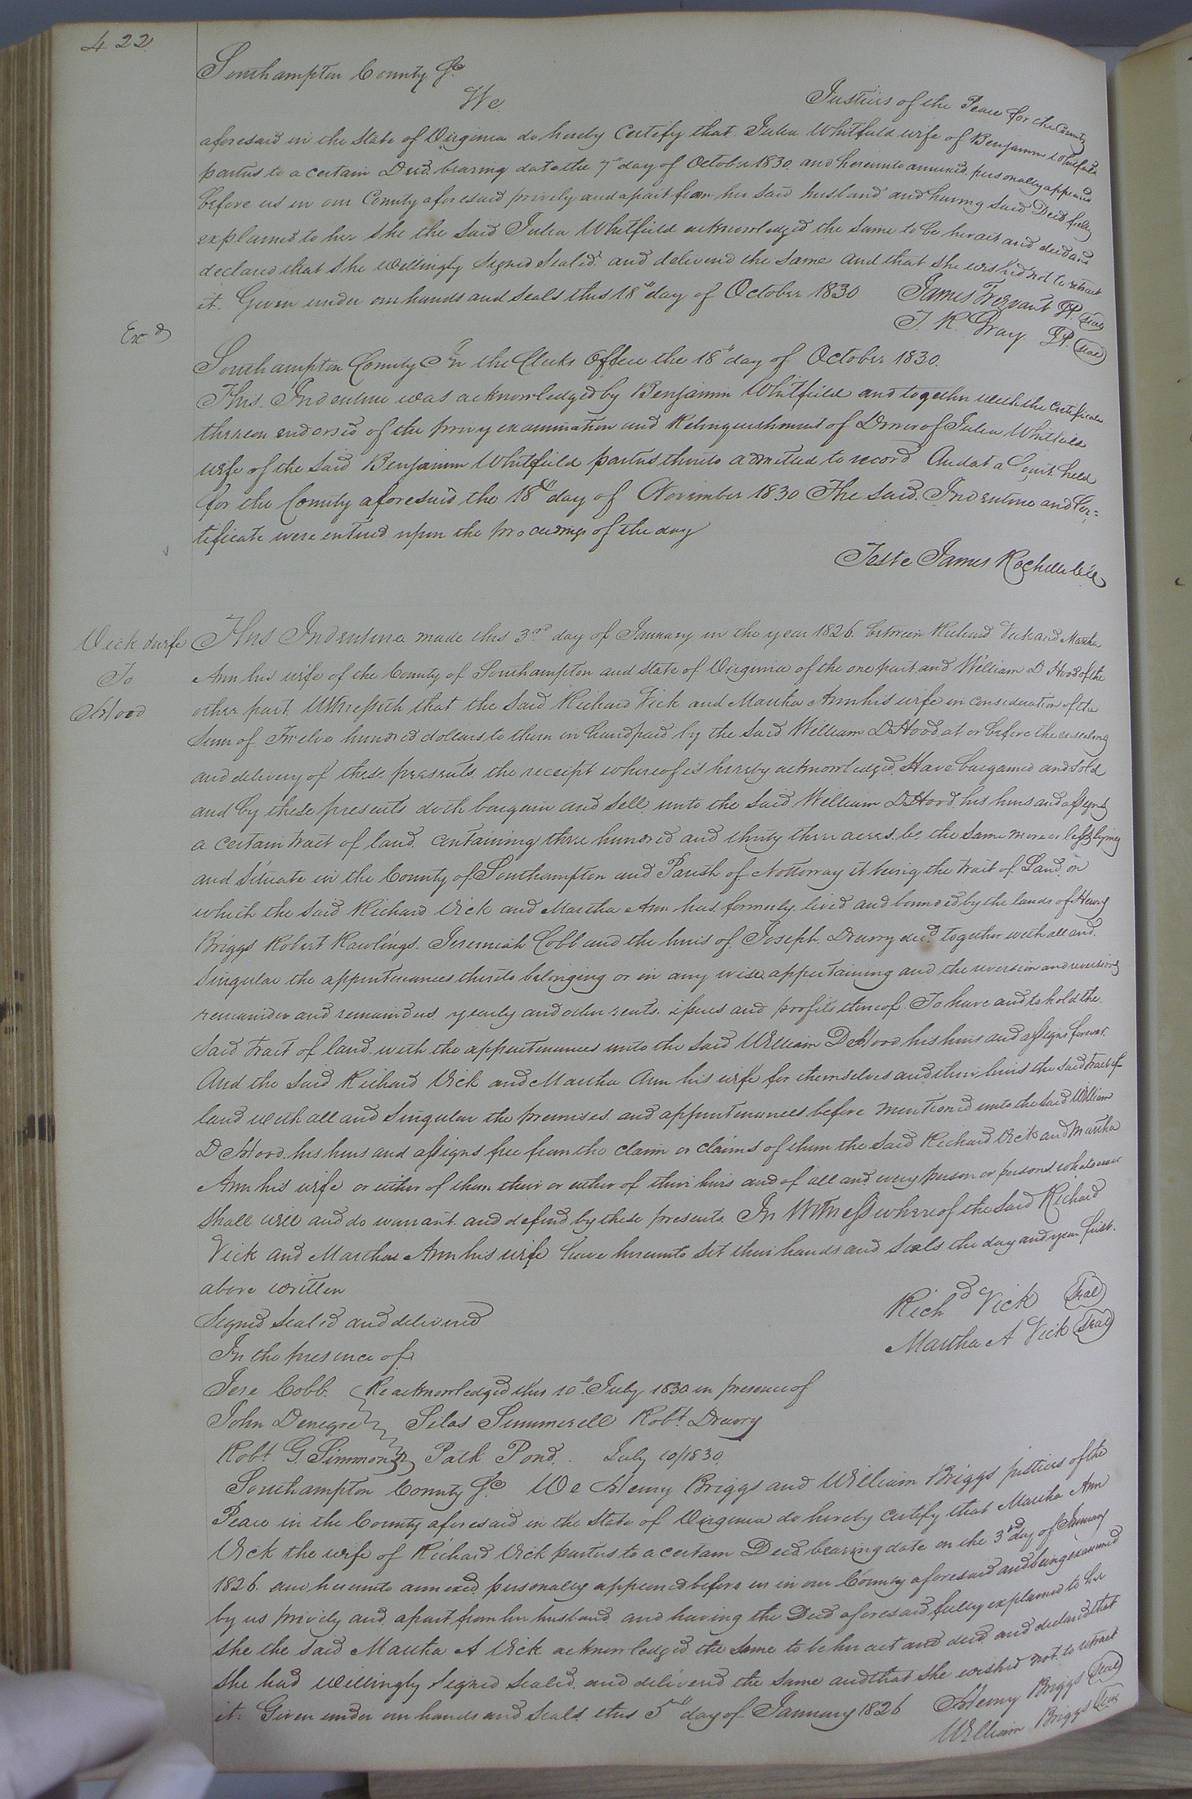 422
Southampton County Sc.
We Justices of the Peace for the County
aforesaid in the State of Virginia do hereby Certify that Julia Whitfield wife of Benjamin Whitfield
parties to a certain Deed bearing date the 7th day of October 1830 and hereunto annexed personally appeared
before us in our County aforesaid privily and apart from her said husband and having said Deed fully
explained to her She the Said Julia Whitfield acknowledged the same to be her act and deed and
declared that she willingly Signed Sealed and delivered the same and that she wished not to retract
it. Given under our hands and Seals this 18th day of October 1830 James Trezvant JP. Seal
T. R. Gray JP Seal
Exd
Southampton County In the Clerks Office the 18th day of October 1830.
This Indenture was acknowledged by Benjamin Whitfield and together with the Certificate
thereon endorsed of the privy examination and Relinquishment of Dower of Julia Whitfield
wife of the Said Benjamin Whitfield parties thereto admitted to record And at a Court held
for the County aforesaid the 18th day of November 1830 The Said Indenture and Cer=
tificate were entered upon the proceedings of the day
Teste James Rochelle Clk
Vick & wife
To
Hood
This Indenture made this 3rd day of January in the year 1826. between Richard Vick and Martha
Ann his wife of the County of Southampton and State of Virginia of the one part and William D Hood of the
other part Witnesseth that the Said Richard Vick and Martha Ann his wife in consideration of the
Sum of Twelve hundred dollars to them in hand paid by the Said William D Hood at or before the ensealing
and delivery of these presents, the receipt whereof is hereby acknowledged, Have bargained and sold
and by these presents doth bargain and Sell unto the Said William D Hood his heirs and assigns
a certain tract of land containing three hundred and thirty three acres be the same more or less lying
and Situate in the County of Southampton and Parish of Nottoway it being the tract of Land on
which the Said Richard Vick and Martha Ann has formerly lived and bounded by the lands of Henry
Briggs Robert Rawlings. Jeremiah Cobb and the heirs of Joseph Drurry decd together with all and
Singular the appurtenances thereto belonging or in any wise appertaining and the reversion and reversions
remainder and remainders yearly and other rents. issues and profits thereof To have and to hold the
Said tract of land with the appurtenances unto the Said William D Hood his heirs and assigns forever.
And the Said Richard Vick and Martha Ann his wife for themselves and their heirs the said tract of
land with all and Singular the premises and appurtenances before mentioned unto the Said William
D Hood his heirs and assigns free from the claim or claims of them the Said Richard Vick and Martha
Ann his wife or either of them their or either of their heirs and of all and every person or persons whatsoever
Shall will and do warrant and defend by these presents In Witness whereof the Said Richard
Vick and Marthas Ann his wife have hereunto Set their hands and Seals the day and year first.
above written
Signed Sealed and delivered Richd Vick Seal
In the presence of Martha A Vick Seal
Jere Cobb. Re acknowledged this 10th July 1830 in presence of
John Denegre Silas Summerell Robt Drurry
Robt G Simmons Park Pond. July 10/1830
Southampton County Sc. We Henry Briggs and William Briggs justices of the
Peace in the County aforesaid in the State of Virginia do hereby certify that Martha Ann
Vick the wife of Richard Vick parties to a certain Deed bearing date on the 3rd day of January
1826. and hereunto annexed personally appeared before us in our County aforesaid and being examined
by us privily and apart from her husband and having the Deed aforesaid fully explained to her
She the Said Martha A Vick acknowledged the Same to be her act and deed and declared that
She had willingly Signed Sealed and delivered the same and that she wished not to retract
it. Given under our hands and Seals this 5th day of January 1826 Henry Briggs Seal
William Briggs Seal